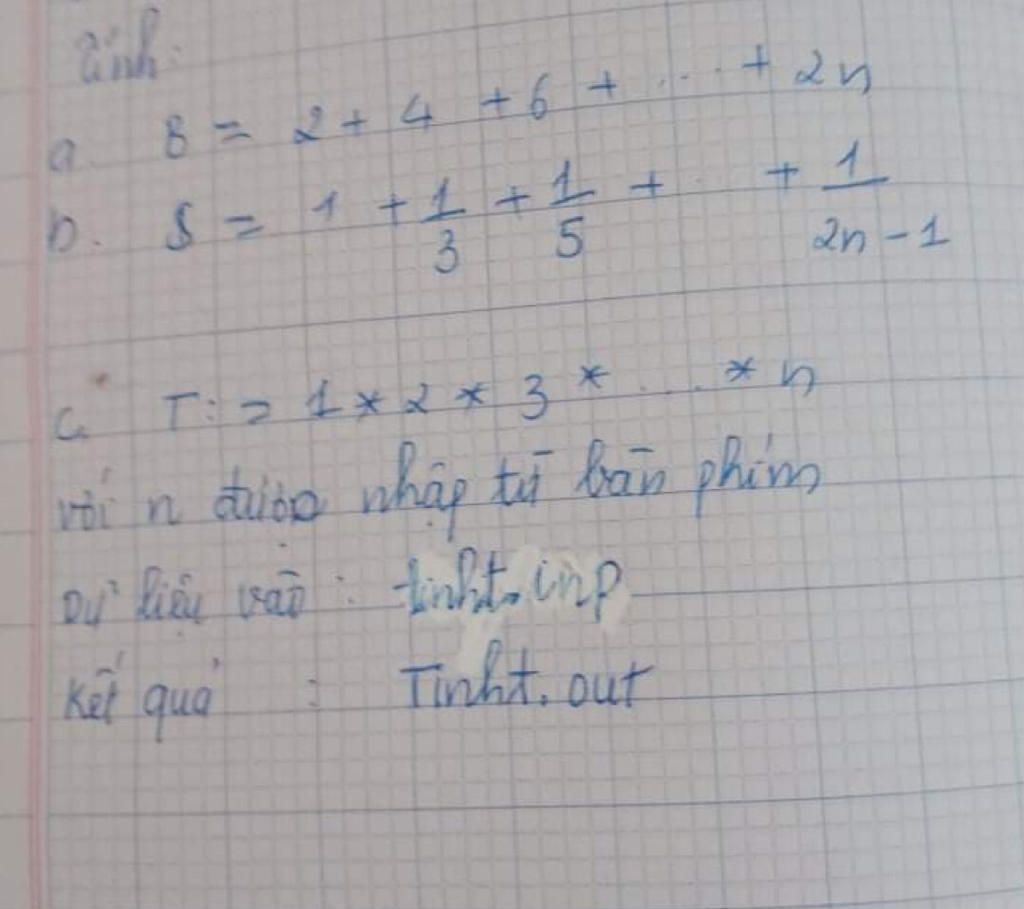 tính:
a. S = 2 + 4 + 6 + ... + 2n
b. S = 1 + 1/3 + 1/5 + ... + 1/(2n - 1)
c. T := 1 * 2 * 3 * ... * n
với n được nhập từ bàn phím
Dự liệu vào : tinht.inp
Kết quả : Tinht.out